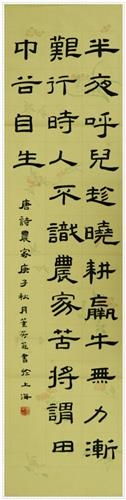 半夜呼兒趁曉耕羸牛無力漸
艱行時人不識農家苦將謂田
中谷自生
唐詩農家庚子松月董芳苑書於上海